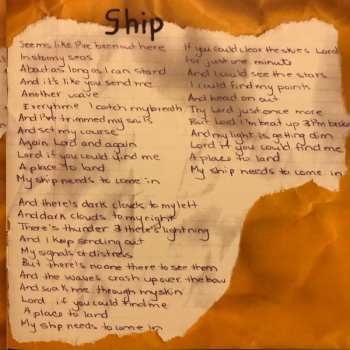 Ship
Seems like I've been out here
In stormy seas
About as long as I can stand
And it's like you send me
Another wave
Everytime I catch my breath
And I've trimmed my sails
And set my course
Again Lord and again
Lord if you could find me
A place to land
My ship needs to come in
And there's dark clouds to my left
And dark clouds to my right
There's thunder & there's lightning
And I keep sending out
My signals of distress
But there's no one there to see them
And the waves crash up over the bow
And soak me through my skin
Lord if you could find me
A place to land
My ship needs to come in
If you could clear the skies Lord
for just one minute
And I could see the stars
I could find my points
And head on out
Try Lord just once more
But Lord I'm beat up & I'm
And my light is getting dim
Lord if you could find me
A place to land
My ship needs to come in